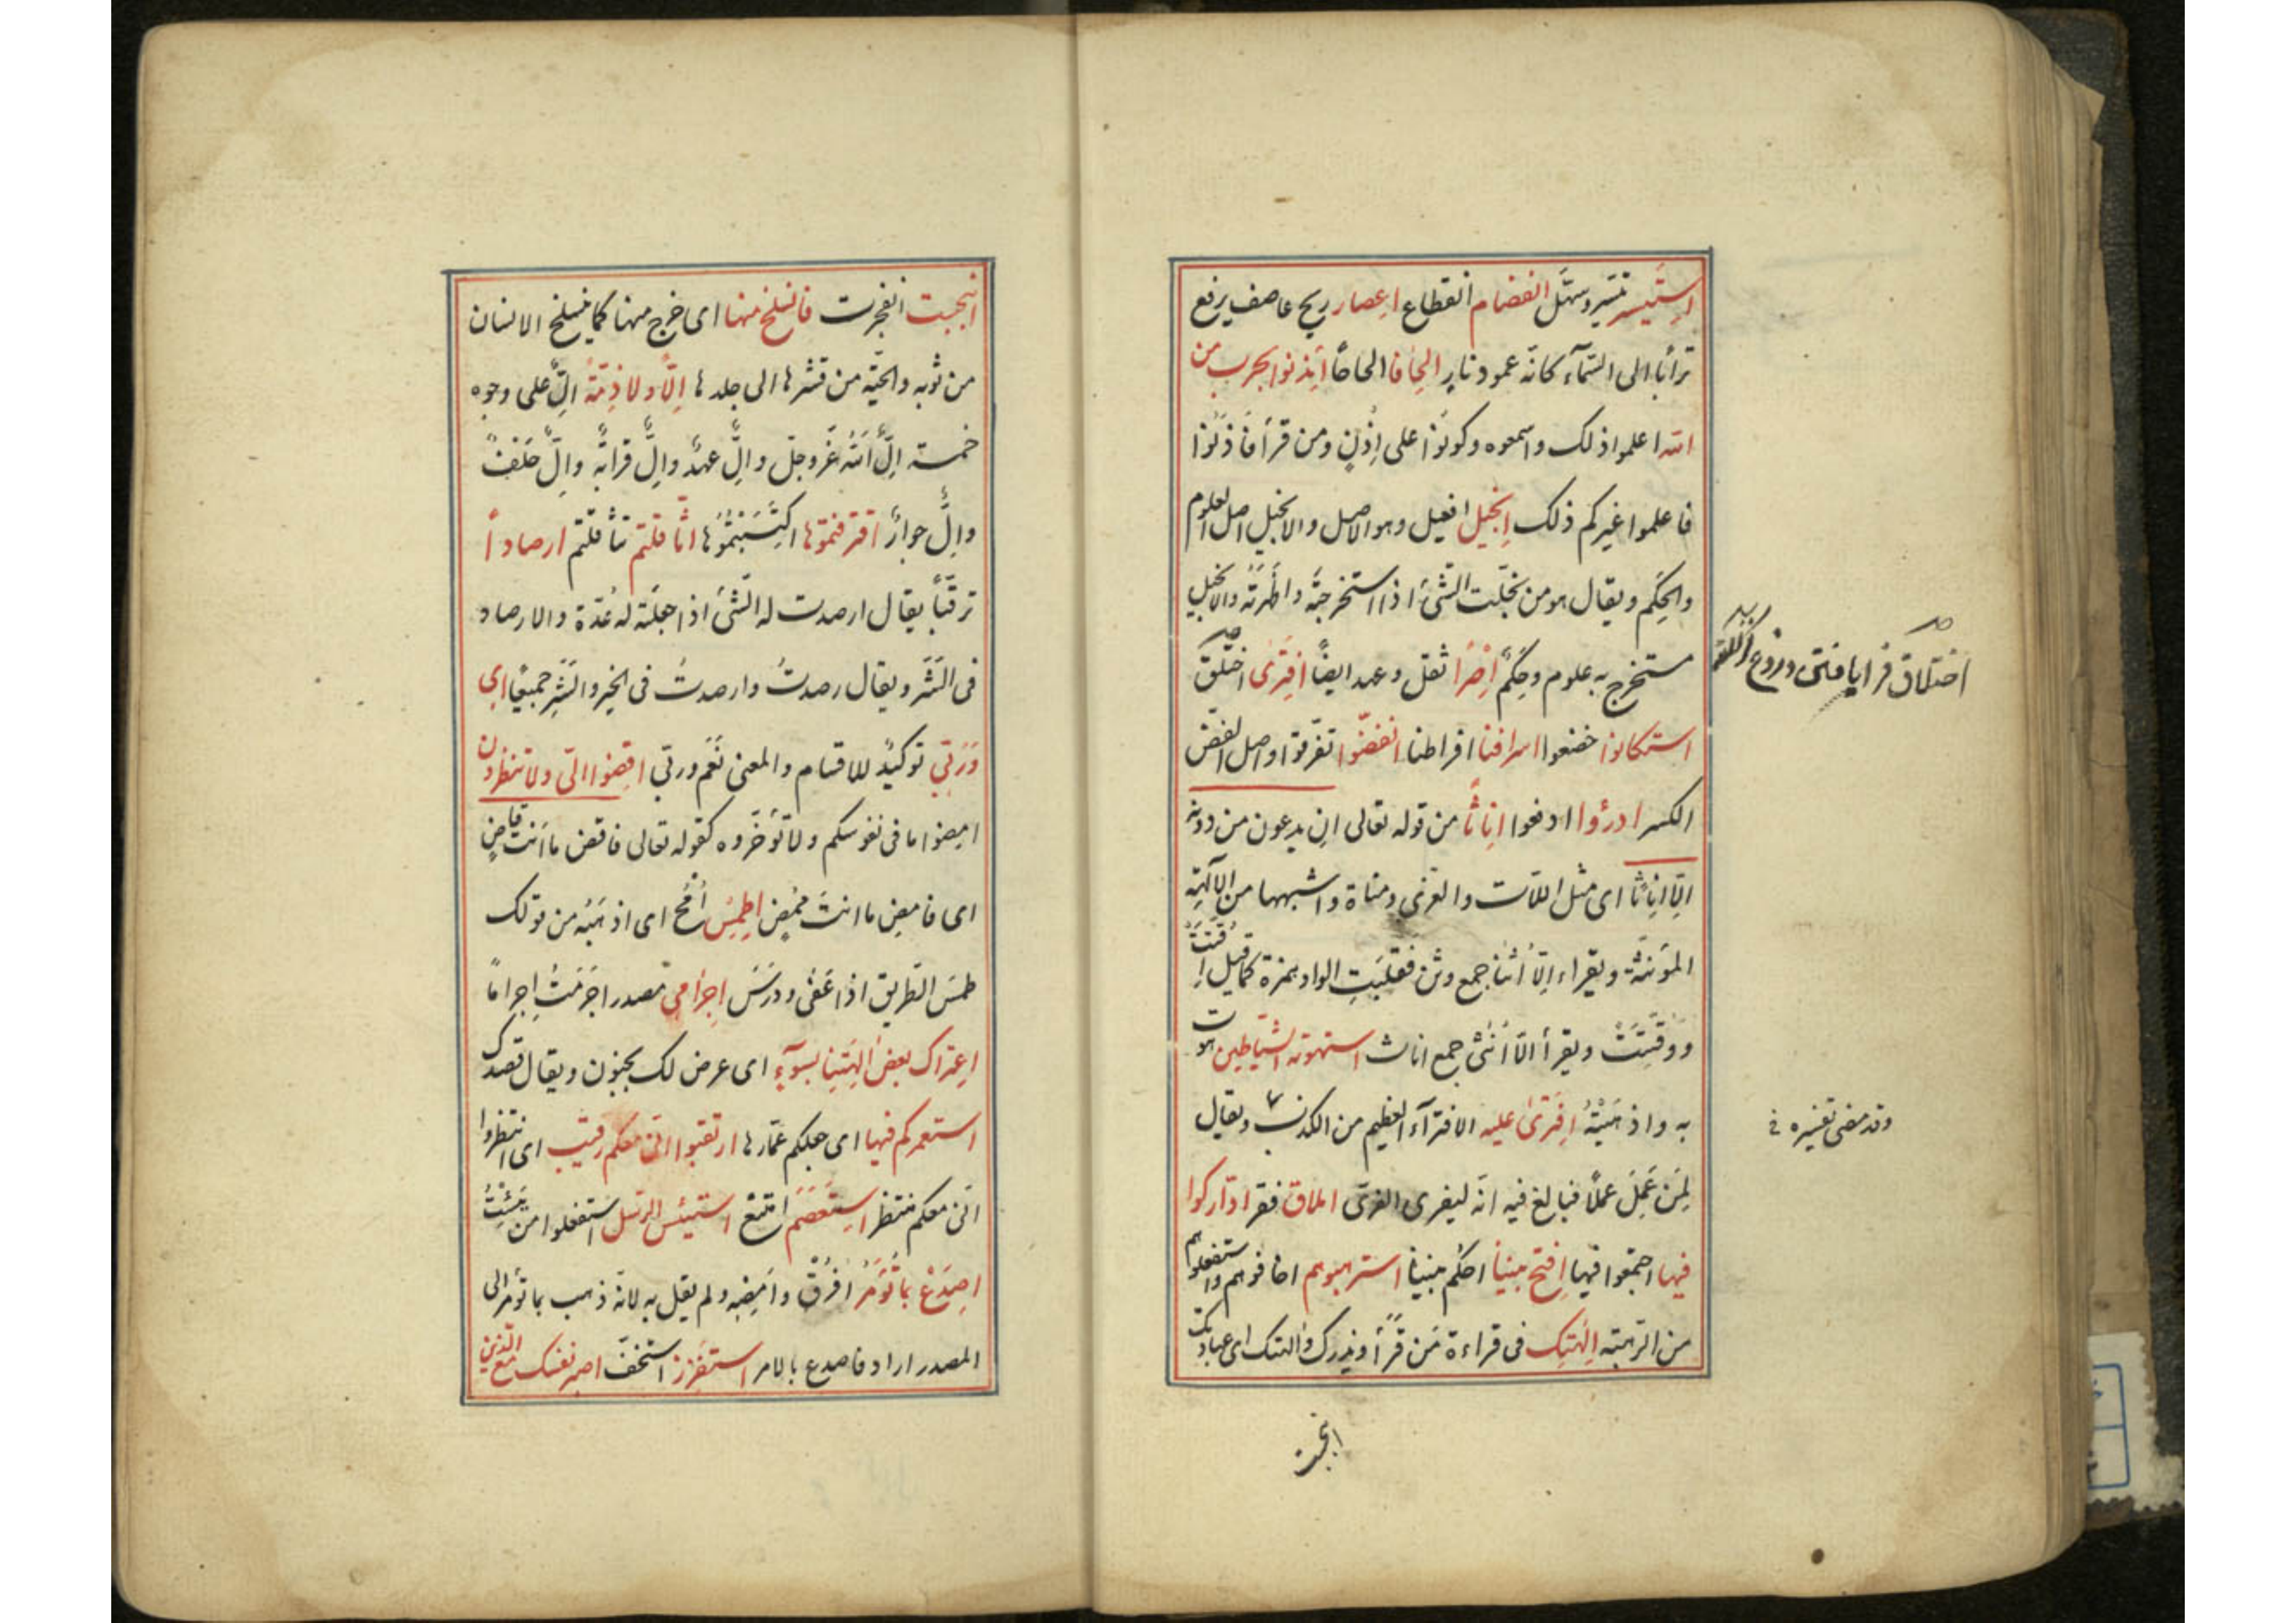 استيسر تيسر وسهّل انفصام انقطاع اعصار ريح عاصف يرفع
ترابا الى السّمآء كانّه عمود نارٍ الحافا الحاحًا أيذنوا بحرب من
الله اعلموا ذلك واسمعوه وكونوا على اذنٍ ومن قرأ فآذنوا
فاعلموا غيركم ذلك إنجيل افعيل وهو الاصل والانجيل اصل العلوم
والحِكَم ويقال هو من نجّلت الشّئ اذا استخرجته واظهرته والانجيل
مستخرج به علوم وحِكَمٌ اِصْرًا ثقل وعهد ايضًا افترى اختلق
استكانوا خضعوا اسرافنا افراطنا انفضّوا تفرقوا واصل الفضّ
الكسر ادرؤا ادفعوا اِناثًا من قوله تعالى ان يدعون من دونه
الّا اِناثًا اى مثل اللّات والعزى ومناة واشبهها من الآلهة
المؤنثة ويقراء الّا اُثنا جمع وثن فقلبت الواو همزة كما قيل اُقّتت
ووُقّتت ويقرأ الّا اُنثى جمع اناث استهوته الشّياطين هوت
به واذهبته اِفترى عليه الافترآء العظيم من الكذب ويقال
لمن عمل عملًا فبالغ فيه انّه ليفرى الفرىّ املاق فقر ادّاركوا
فيها اجتمعوا فيها اِفتح بيننا احكم بيننا استرهبوهم اخافوهم واستفعلوهم
من الرّهبة اِلٰهتك فى قراءة من قرأ ويذرك والهتك اى عبادتك
انبجست
اختلاق فرا يافتن دروغ
وقد مضى تفسيره
انبجست انفجرت فانسلخ منها اى خرج منها كما ينسلخ الانسان
من ثوبه والحيّة من قشرها الى جلدها اِلًّا ولا ذِمّةً اِلّ على وجوه
خمسة اِلٌّ اللّٰه عزّ وجلّ واِلٌّ عهدٌ واِلٌّ قرابةٌ واِلٌّ حَلفٌ
واِلٌّ جوارٌ اقترفتموها اكتسبتموها اثّاقلتم تثاقلتم ارصادًا
ترقّبًا يقال ارصدت له الشّئ اذا جعلته له عُدّة والارصاد
فى الشّر ويقال رصدتُ وارصدتُ فى الخير والشّر جميعًا اى
وربّي توكيدٌ للاقسام والمعنى نعم وربّي اقضوا الىّ ولا تنظرون
امضوا ما فى نفوسكم ولا تؤخّروه كقوله تعالى فاقض ما انت قاضٍ
اى فامض ما انت مُمضٍ اِطمس اُمحُ اى اذهبه من قولك
طمس الطّريق اذا عفى ودرس اِجرامى مصدر اجرمتُ اجراما
اِعتراك بعض الهتنا بسوٓء اى عرض لك بجنون ويقال قصدك
استعمركم فيها اى جعلكم عمّارها ارتقبوا انّى معكم رقيب اى انتظروا
انّى معكم منتظر استعصم امتنع استيئس الرّسل استفعلوا من يئست
اصدع بما تؤمر اُفرُق وامضه ولم يقل به لانّه ذهب بما تؤمر الى
المصدر اراد فاصدع بالامر استفزز استخفّ اصبر نفسك مع الّذين